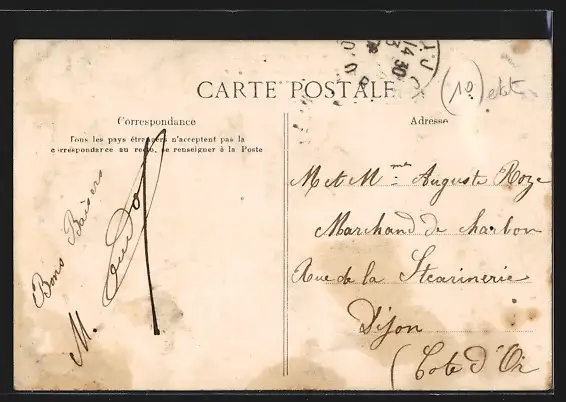 CARTE POSTALE
Correspondance
Tous les pays étrangers n'acceptent pas la
correspondance au recto, se renseigner à la Poste
Bons Baisers
M.
Adresse
M et Mme Auguste Roze
Marchand de charbon
Rue de la Stearinerie
Dijon
(Cote d'Or
14 30